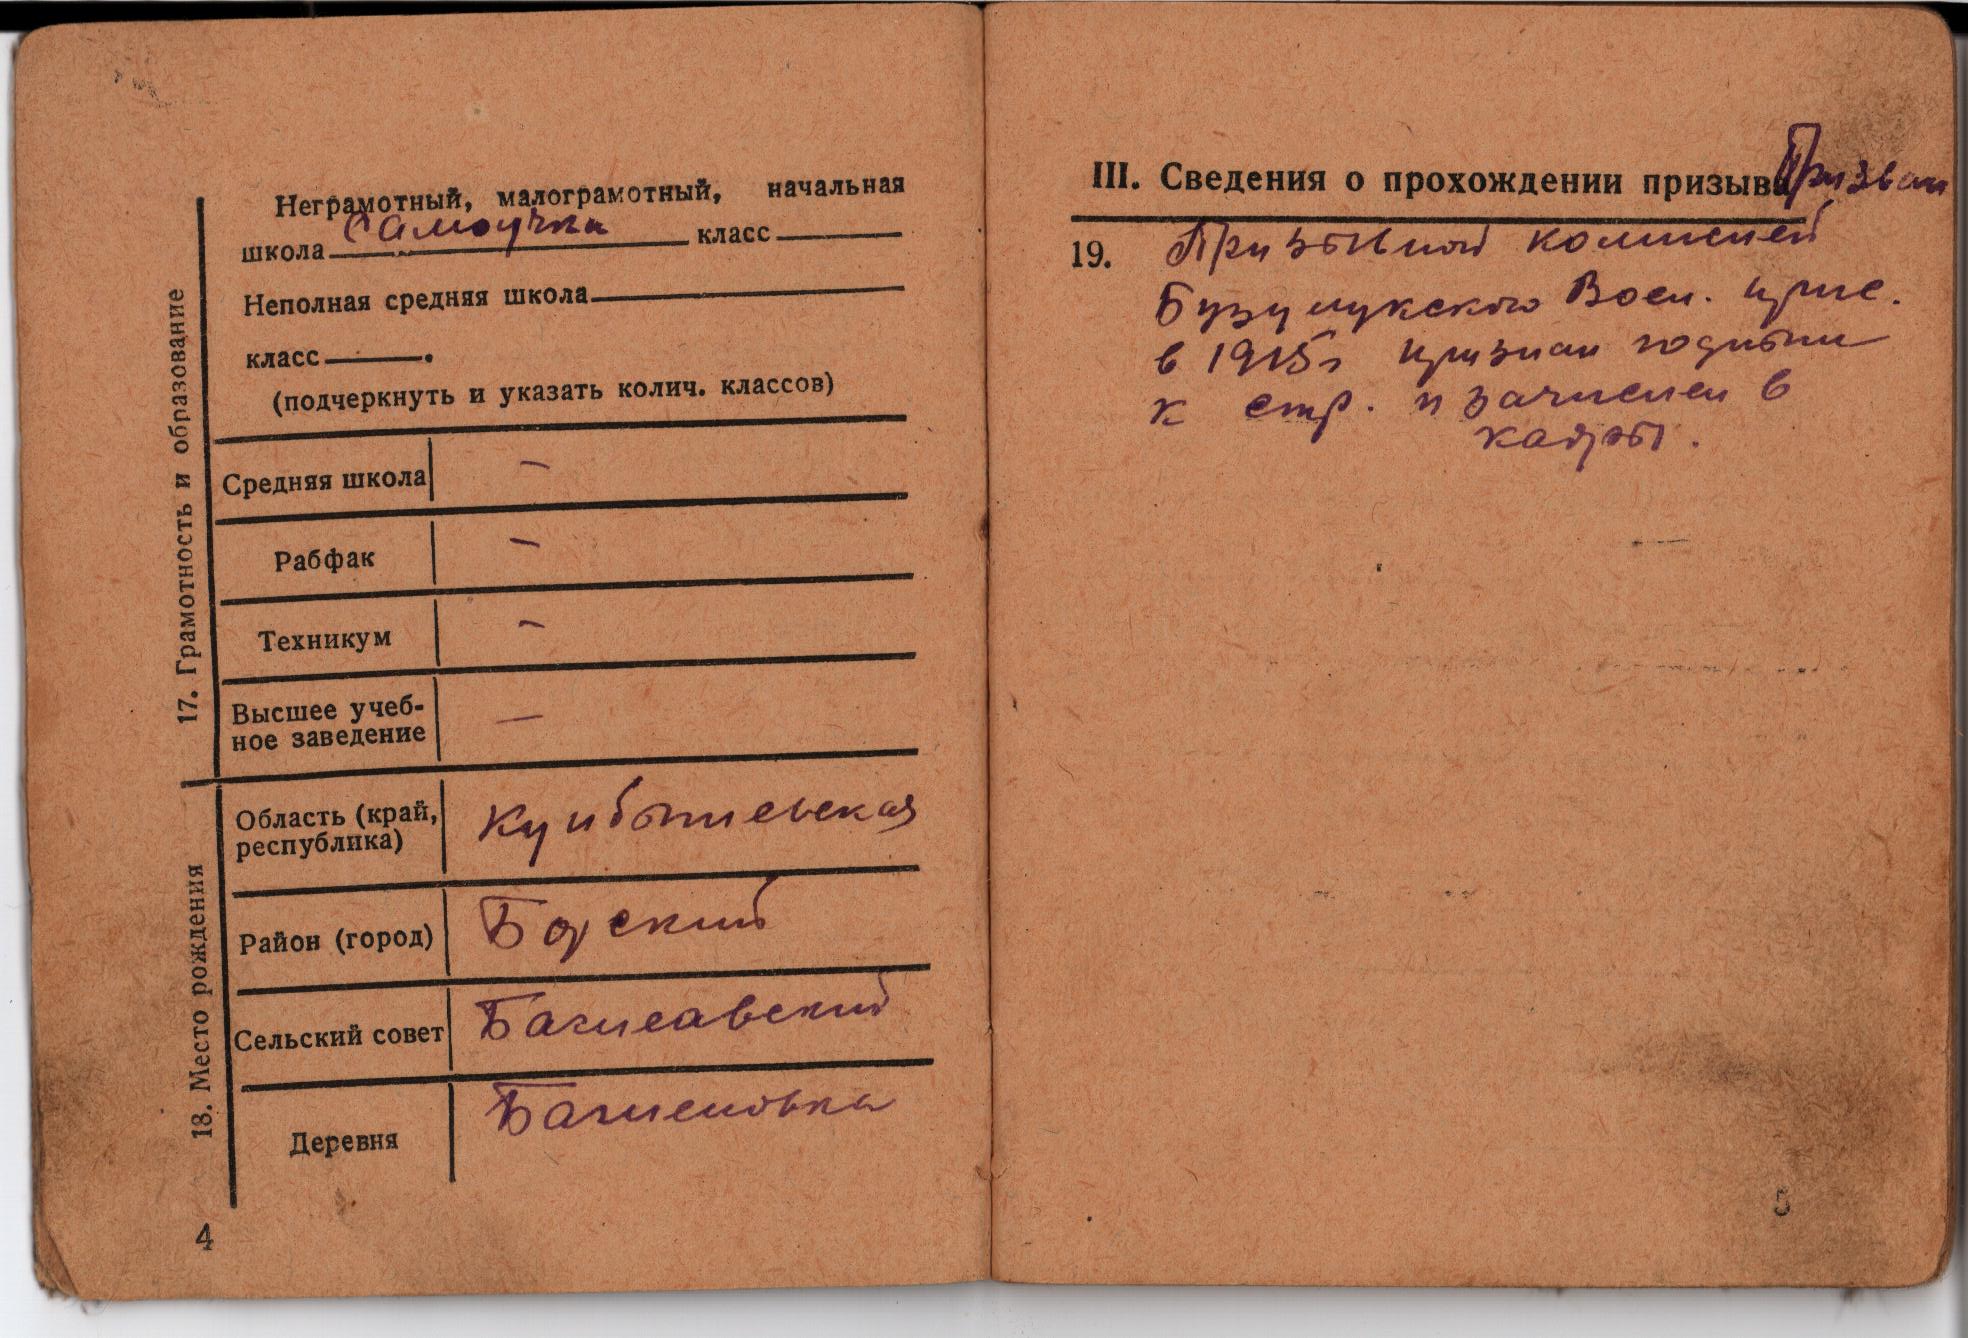 17. Грамотность и образование
Неграмотный, малограмотный, начальная
школа самоучка класс
Неполная средняя школа
класс .
(подчеркнуть и указать колич. классов)
Средняя школа –
Рабфак –
Техникум –
Высшее учеб-
ное заведение –
18. Место рождения
Область (край,
республика) Куйбышевская
Район (город) Борский
Сельский совет
Деревня
4
III. Сведения о прохождении призыва Призван
19. Призывной комиссией
Бузулукского Воен. прис.
в 1915г признан годным
к стр. и зачислен в
кадры.
5